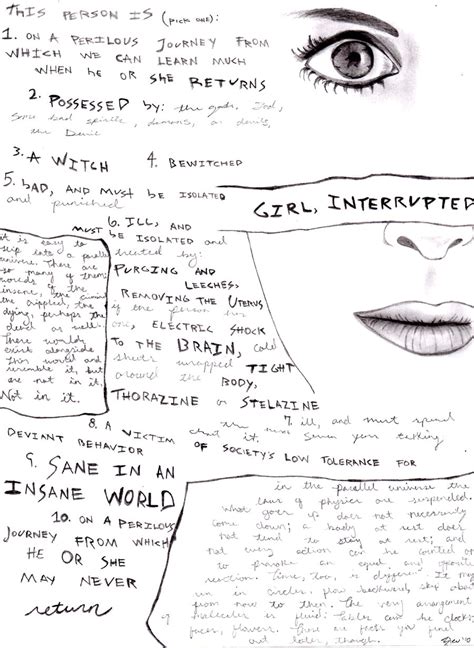 THIS PERSON IS (pick one):
1. ON A PERILOUS JOURNEY FROM
WHICH WE CAN LEARN MUCH
WHEN HE OR SHE RETURNS
2. POSSESSED by: the gods, God,
some bad spirits, demons, or devils,
the Devil
3. A WITCH
4. BEWITCHED
5. bAD, AND MUST bE ISOLATED
and punished
GIRL, INTERRUPTED
6. ILL, AND
MUST bE ISOLATED and
treated by:
PURGING AND
LEECHES,
REMOVING THE UTERUS
if the person has
one, ELECTRIC SHOCK
TO THE BRAIN, cold
sheets wrapped TIGHT
around the BODY,
THORAZINE OR STELAZINE
it is easy to
slip into a parallel
universe. There are
so many of them:
worlds of the
insane, the criminal
the crippled, the
dying, perhaps the
dead as well.
These worlds
exist alongside
this world and
resemble it, but
are not in it.
Not in it.
7. ill, and must spend
the next seven years talking
about it
8. A VICTIM OF SOCIETY'S LOW TOLERANCE FOR
DEVIANT BEHAVIOR
9. SANE IN AN
INSANE WORLD
10. ON A PERILOUS
JOURNEY FROM WHICH
HE OR SHE
MAY NEVER
return
in the parallel universe the
laws of physics are suspended.
What goes up does not necessarily
come down; a body at rest does
not tend to stay at rest; and
not every action can be counted on
to provoke an equal and opposite
reaction. Time, too, is different. It may
run in circles, flow backward, skip about
from now to then. The very arrangement
of molecules is fluid: Tables can be clocks;
faces, flowers. These are facts you find
out later, though.